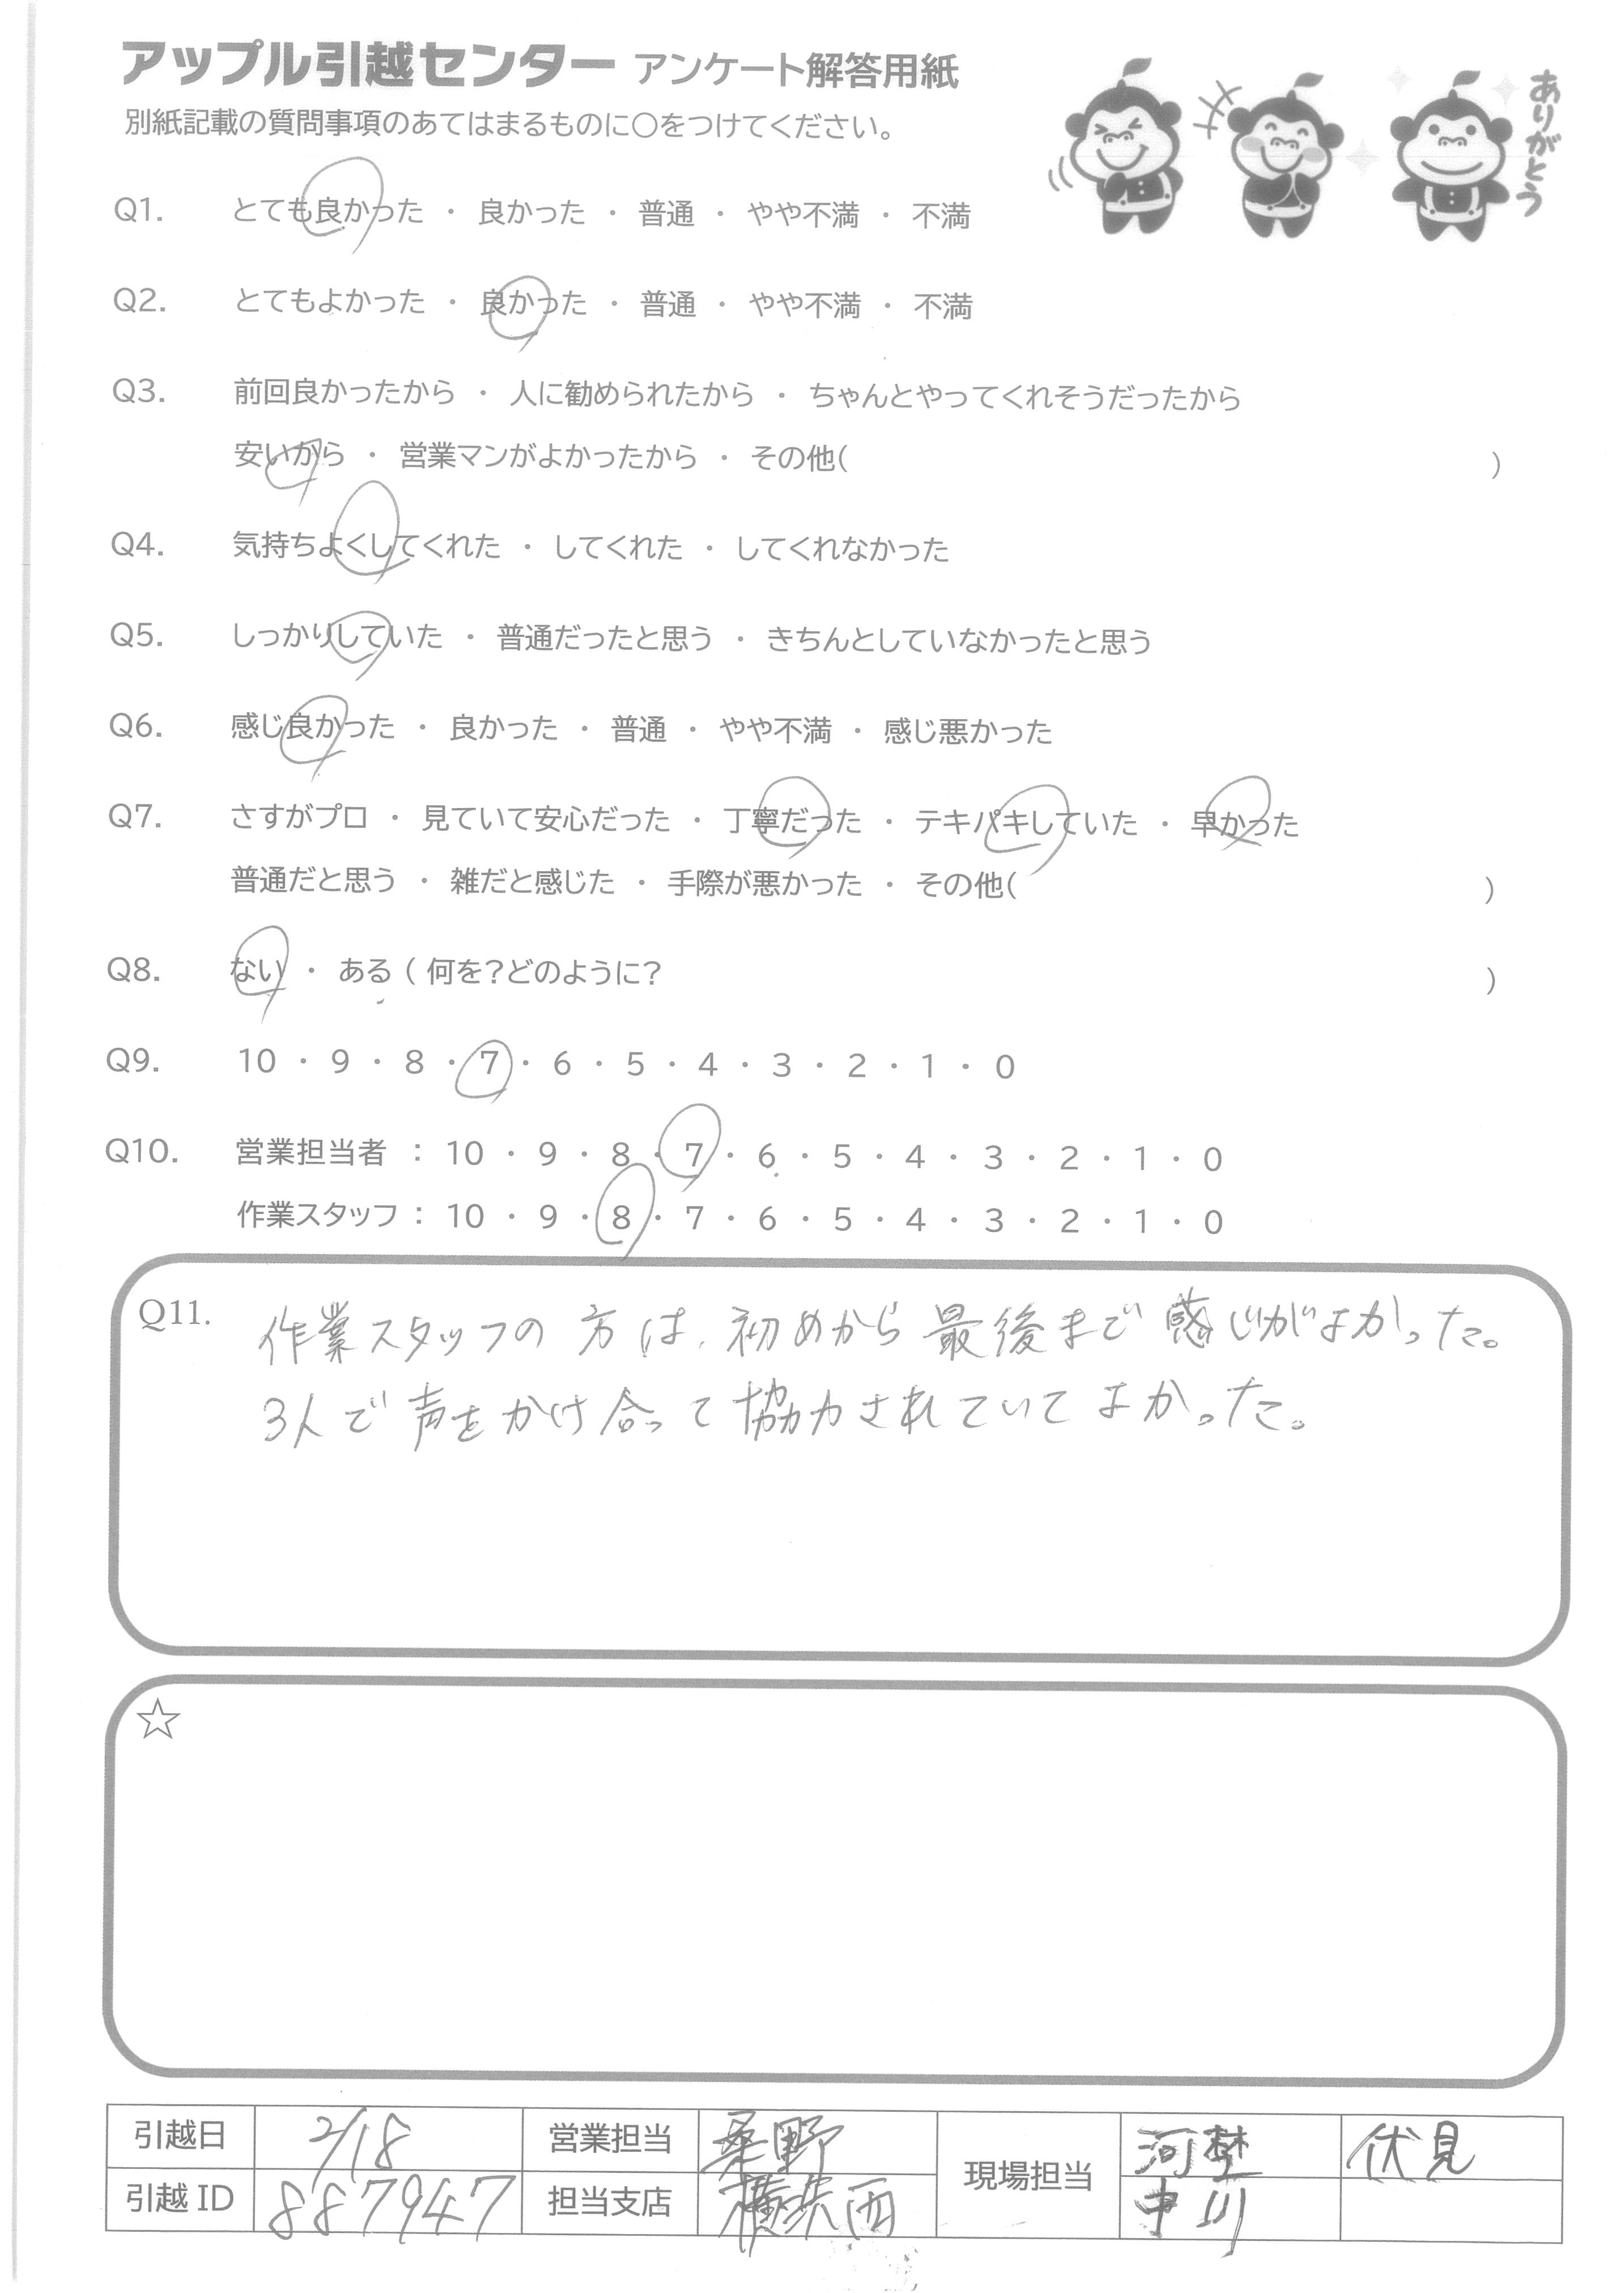 アップル引越センター アンケート解答用紙
別紙記載の質問事項のあてはまるものに○をつけてください。
ありがとう
Q1. とても良かった ・ 良かった ・ 普通 ・ やや不満 ・ 不満
Q2. とてもよかった ・ 良かった ・ 普通 ・ やや不満 ・ 不満
Q3. 前回良かったから ・ 人に勧められたから ・ ちゃんとやってくれそうだったから
安いから ・ 営業マンがよかったから ・ その他( )
Q4. 気持ちよくしてくれた ・ してくれた ・ してくれなかった
Q5. しっかりしていた ・ 普通だったと思う ・ きちんとしていなかったと思う
Q6. 感じ良かった ・ 良かった ・ 普通 ・ やや不満 ・ 感じ悪かった
Q7. さすがプロ ・ 見ていて安心だった ・ 丁寧だった ・ テキパキしていた ・ 早かった
普通だと思う ・ 雑だと感じた ・ 手際が悪かった ・ その他( )
Q8. ない ・ ある ( 何を?どのように? )
Q9. 10 ・ 9 ・ 8 ・ 7 ・ 6 ・ 5 ・ 4 ・ 3 ・ 2 ・ 1 ・ 0
Q10. 営業担当者 : 10 ・ 9 ・ 8 ・ 7 ・ 6 ・ 5 ・ 4 ・ 3 ・ 2 ・ 1 ・ 0
作業スタッフ : 10 ・ 9 ・ 8 ・ 7 ・ 6 ・ 5 ・ 4 ・ 3 ・ 2 ・ 1 ・ 0
Q11. 作業スタッフの方は、初めから最後まで感じがよかった。
3人で声をかけ合って協力されていてよかった。
☆
引越日 2/18 営業担当 桑野 現場担当 河埜 伏見
引越ID 887947 担当支店 横浜西 中川